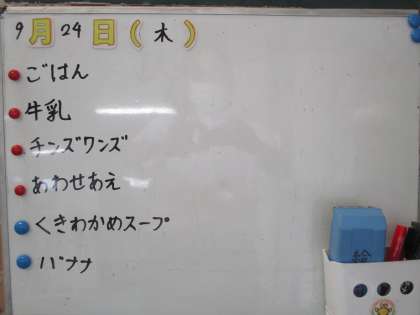 9月24日(木)
ごはん
牛乳
チンズワンズ
あわせあえ
くきわかめスープ
バナナ